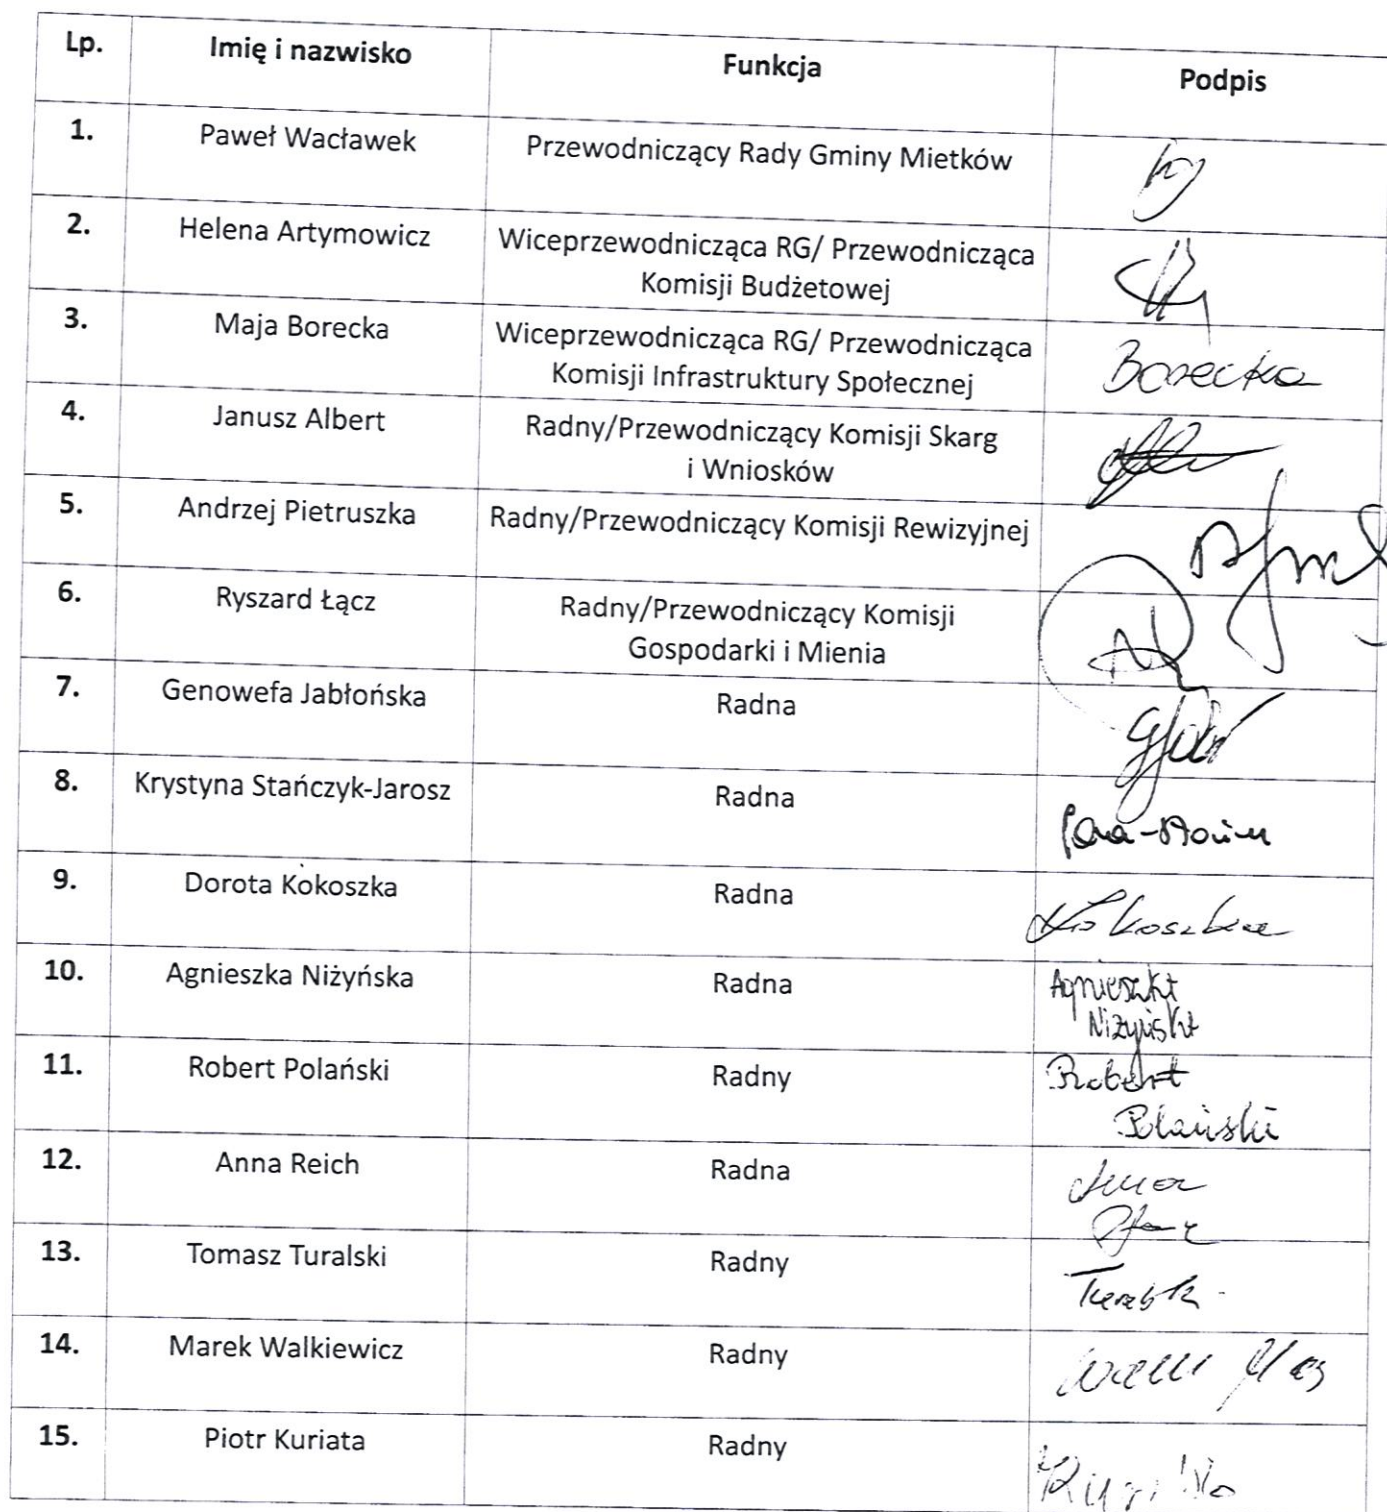 Lp. Imię i nazwisko Funkcja Podpis
1. Paweł Wacławek Przewodniczący Rady Gminy Mietków
2. Helena Artymowicz Wiceprzewodnicząca RG/ Przewodnicząca
Komisji Budżetowej
3. Maja Borecka Wiceprzewodnicząca RG/ Przewodnicząca
Komisji Infrastruktury Społecznej
Borecka
4. Janusz Albert Radny/Przewodniczący Komisji Skarg
i Wniosków
5. Andrzej Pietruszka Radny/Przewodniczący Komisji Rewizyjnej
6. Ryszard Łącz Radny/Przewodniczący Komisji
Gospodarki i Mienia
7. Genowefa Jabłońska Radna
8. Krystyna Stańczyk-Jarosz Radna
9. Dorota Kokoszka Radna
Kokoszka
10. Agnieszka Niżyńska Radna
Agnieszka
Niżyńska
11. Robert Polański Radny
Robert
Polański
12. Anna Reich Radna
Anna
13. Tomasz Turalski Radny
14. Marek Walkiewicz Radny
15. Piotr Kuriata Radny